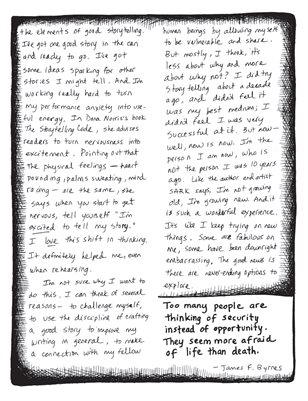 the elements of good storytelling.
I've got one good story in the can
and ready to go. I've got
some ideas sparking for other
stories I might tell. And I'm
working really hard to turn
my performance anxiety into use-
ful energy. In Dana Norris's book
The Storytelling Code, she advises
readers to turn nervousness into
excitement. Pointing out that
the physical feelings — heart
pounding, palms sweating, mind
racing — are the same, she
says when you start to get
nervous, tell yourself "I'm
excited to tell my story."
I love this shift in thinking.
It definitely helped me, even
when rehearsing.
I'm not sure why I want to
do this. I can think of several
reasons — to challenge myself,
to use the discipline of crafting
a good story to improve my
writing in general, to make
a connection with my fellow
human beings by allowing myself
to be vulnerable and share.
But mostly, I think, it's
less about why and more
about why not? I did try
storytelling about a decade
ago, and didn't feel it
was my best medium; I
didn't feel I was very
successful at it. But now —
well, now is now. I'm the
person I am now, who is
not the person I was 10 years
ago. Like the author and artist
SARK says, I'm not growing
old, I'm growing new. And it
is such a wonderful experience.
It's like I keep trying on new
things. Some are fabulous on
me, some have been downright
embarrassing. The good news is
there are never-ending options to
explore.
Too many people are
thinking of security
instead of opportunity.
They seem more afraid
of life than death.
- James F. Byrnes